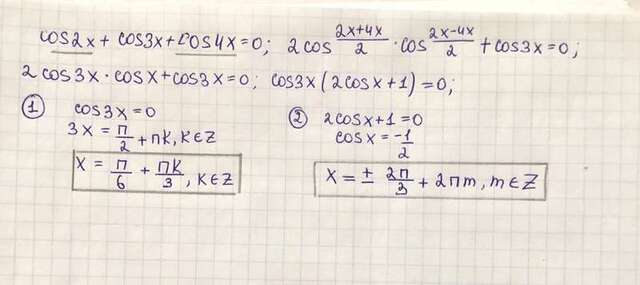 cos2x + cos3x + cos4x = 0; 2cos (2x+4x)/2 · cos (2x-4x)/2 + cos3x = 0;
2cos3x · cosx + cos3x = 0; cos3x(2cosx+1) = 0;
① cos3x = 0
3x = п/2 + пк, к∈Z
x = п/6 + пк/3, к∈Z
② 2cosx+1 = 0
cosx = -1/2
x = ± 2п/3 + 2пm, m∈Z